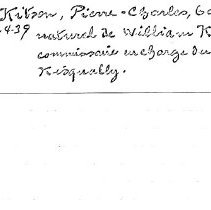 Kitson, Pierre-Charles,
439 naturel de William K
commissaire en charge du
Nisqually.